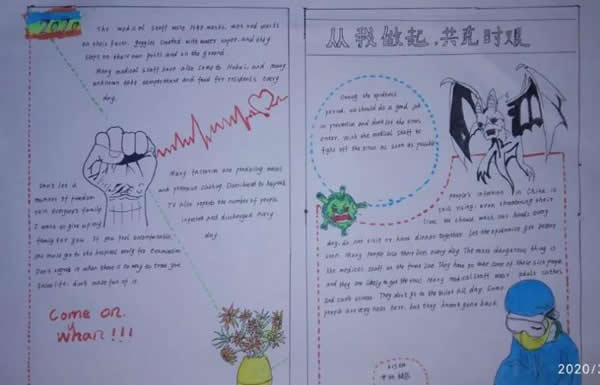 2020
The medical staff wore masks, and red marks
on their faces, goggles coated with water vapor, and they
slept on their own paths and on the ground
Many medical staff have also come to Hubei, and many
unknown take temperature and food for residents every
day.
Many factories are producing masks
and protective clothing. Download to hospital
TV also repeats the number of people
infected and discharged every
day.
members of
family
I want to give up my
family for you. If you feel uncomfortable
you must go to the hospital early for examination
Don't when there is no way to treat you
life. don't make fun of it
Come on.
whan!!!
从我做起,共克时艰
During the epidemic
period, we should do a good job
in prevention and don't let the virus
enter. Wish the medical staff to
fight off the virus as soon as possible
People's infection in China is
still rising. even threatening their
lives. We should wash our hands every
day, do not visit or have dinner together. let the epidemic get better
soon. Many people lose their lives every day. The most dangerous thing is
the medical staff on the front line. They have to take care of these sick people
and they are likely to get the virus. Many medical staff wear adult clothes
and can't urinate. They don't go to the toilet all day. Some
people are very near here, but they haven't gone back.
2020/